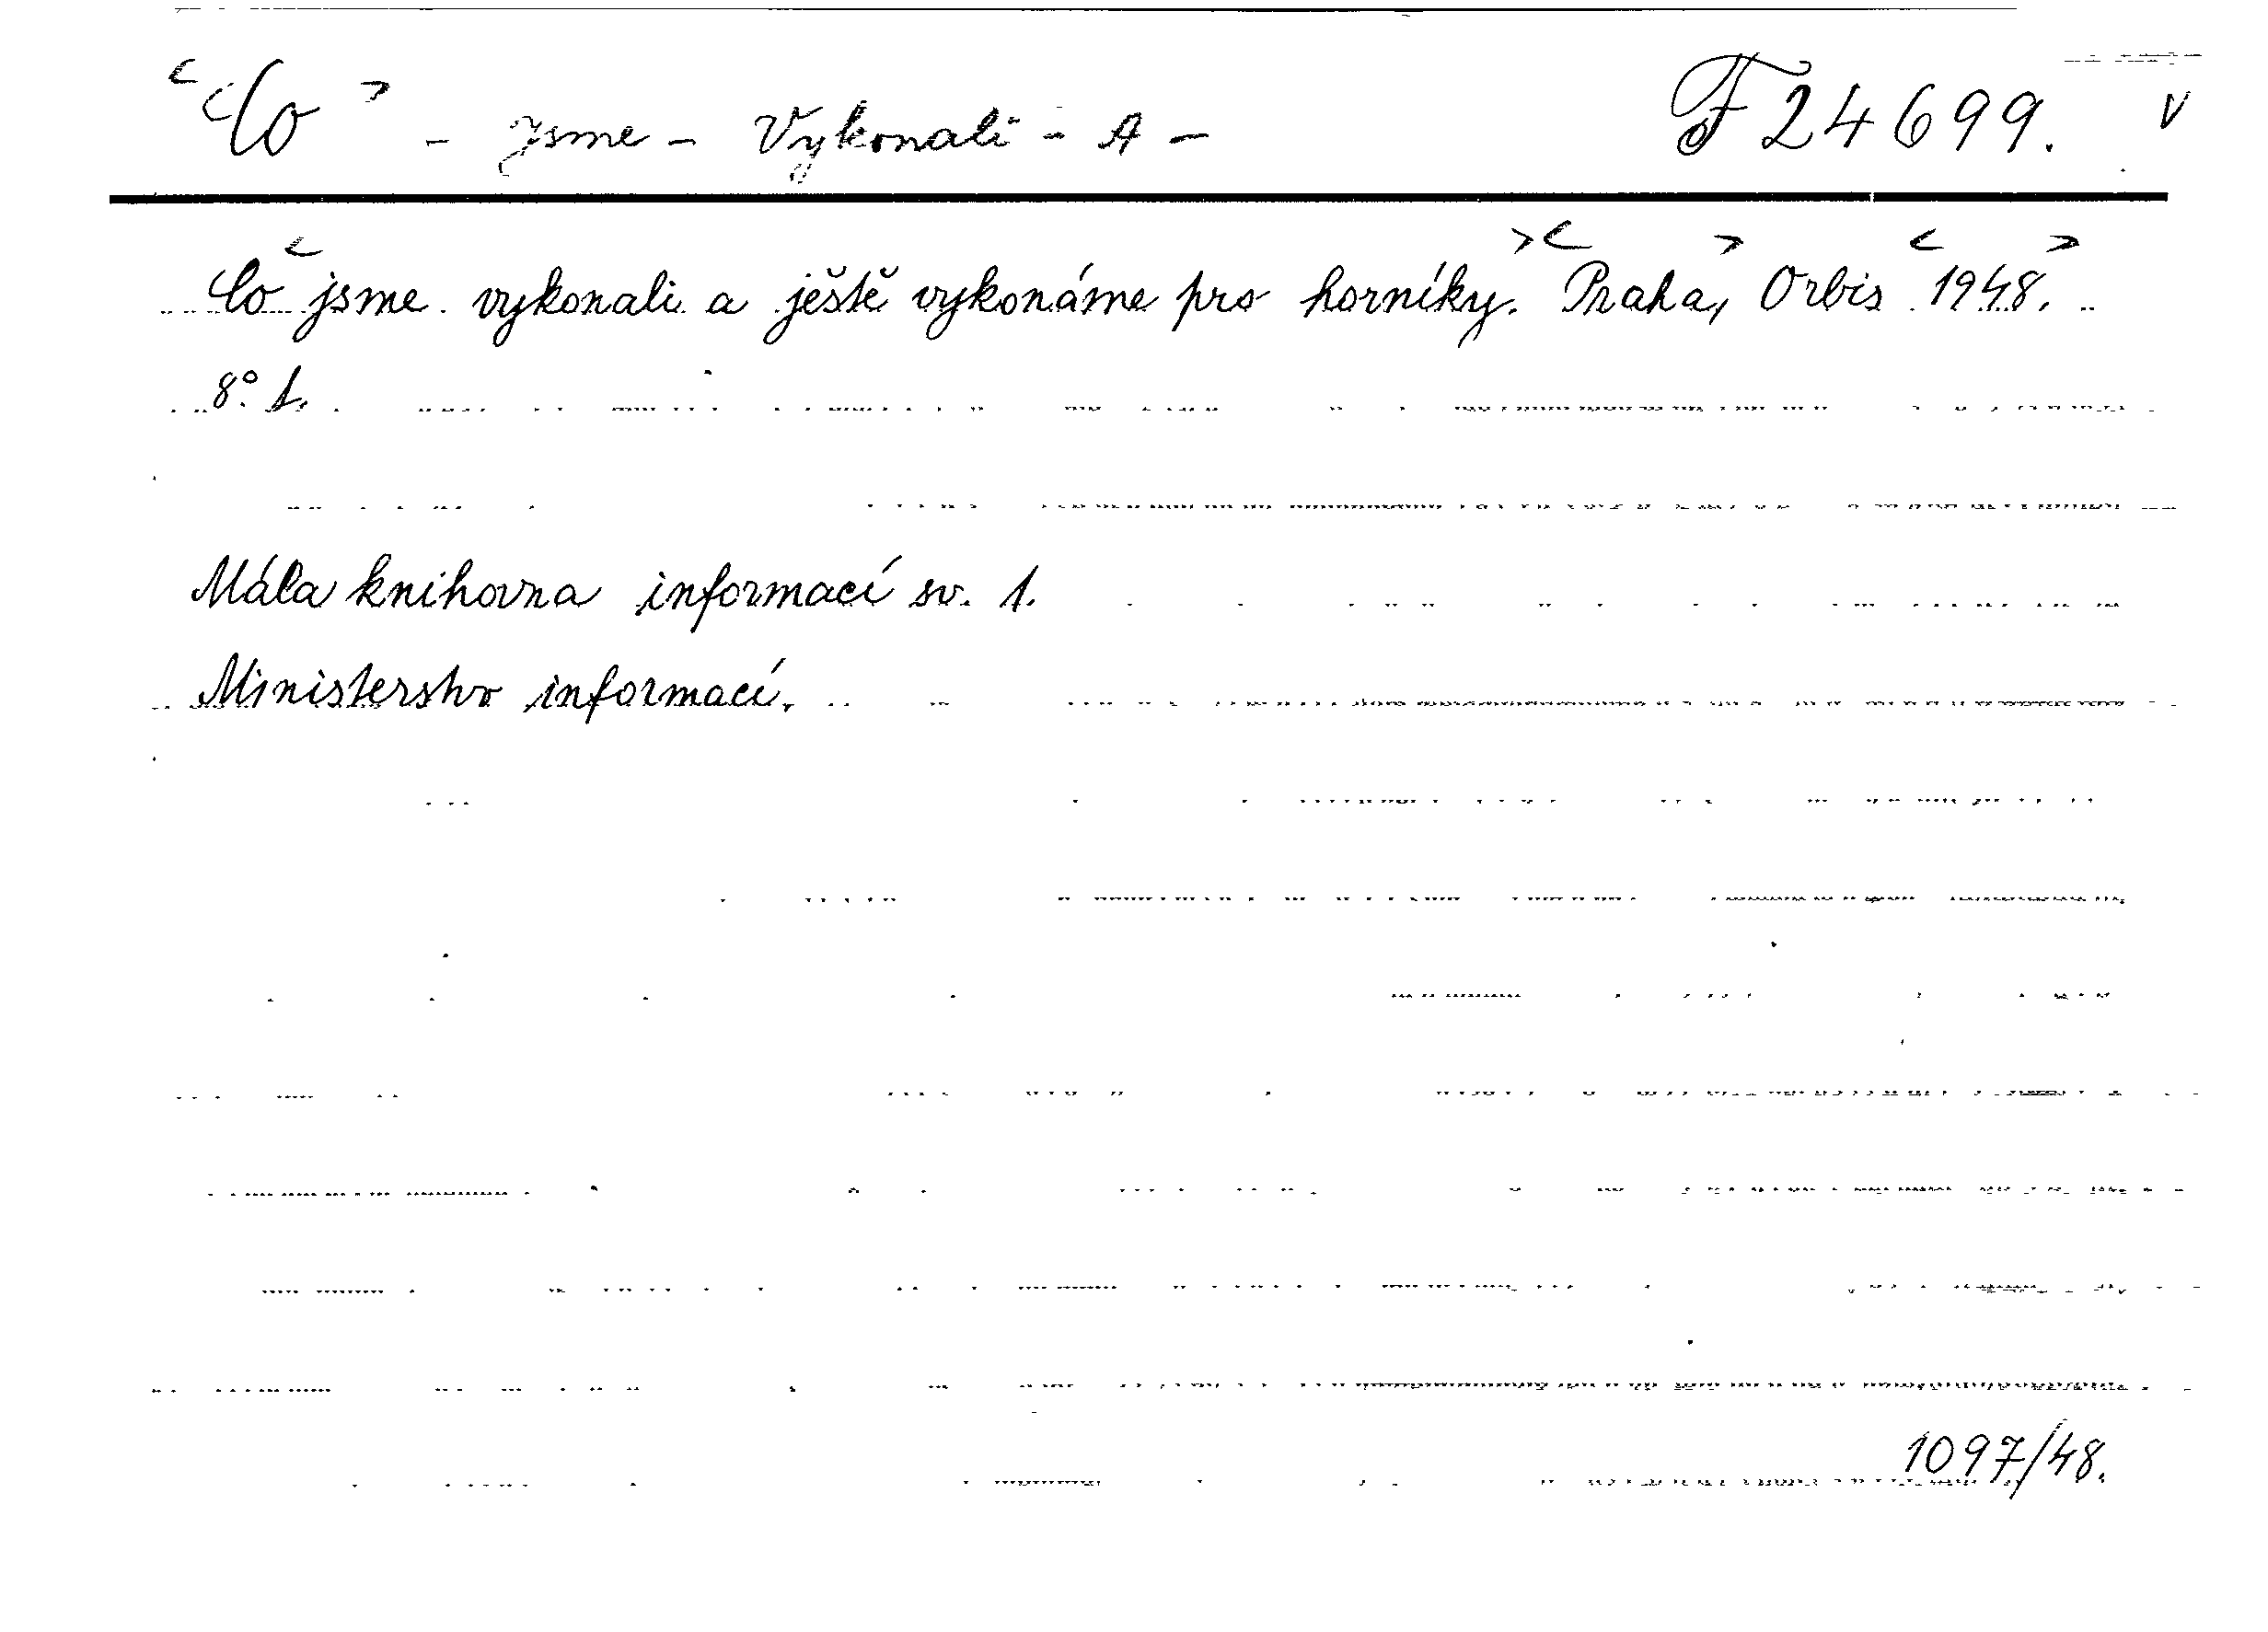 <Co> - jsme - Vykonali - A - F 24699. V
Co jsme vykonali a ještě vykonáme pro horníky. Praha, Orbis 1948.
8°. 1.
Mála knihovna informací sv. 1.
Ministerstvo informací.
1097/48.